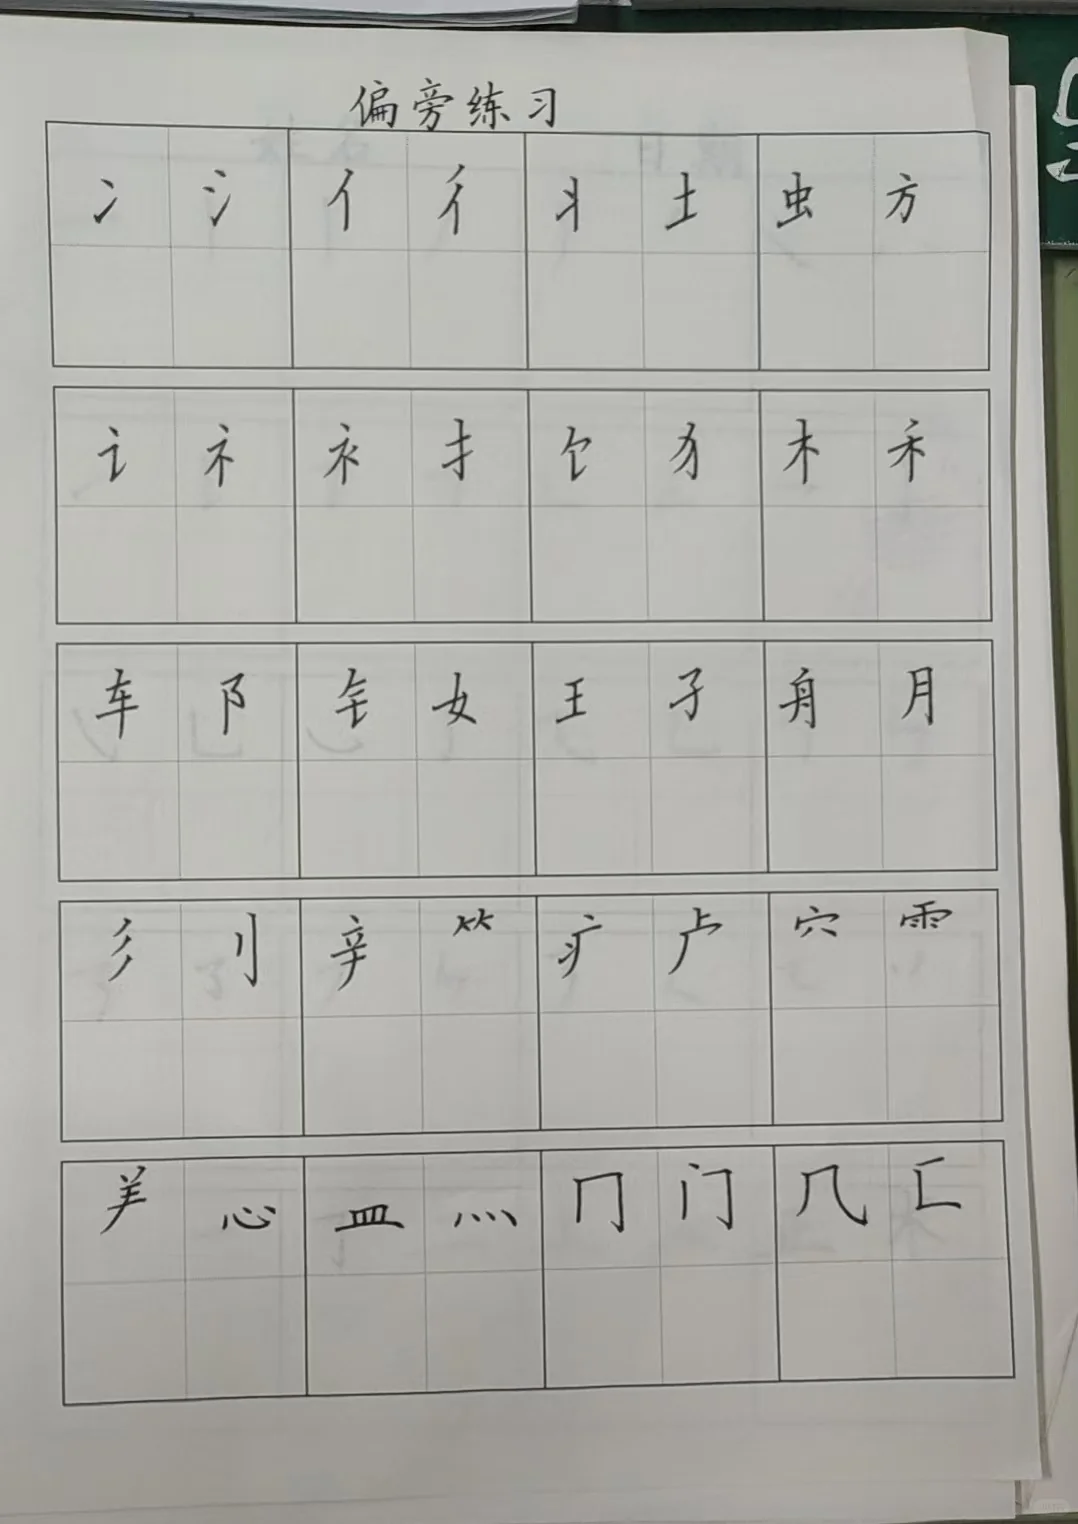 偏旁练习
冫 氵 亻 彳 丬 土 虫 方
讠 礻 衤 扌 饣 犭 木 禾
车 阝 钅 女 王 子 舟 月
彡 刂 辛 ⺮ 疒 虍 穴 雨
⺶ 心 皿 灬 冂 门 几 匚